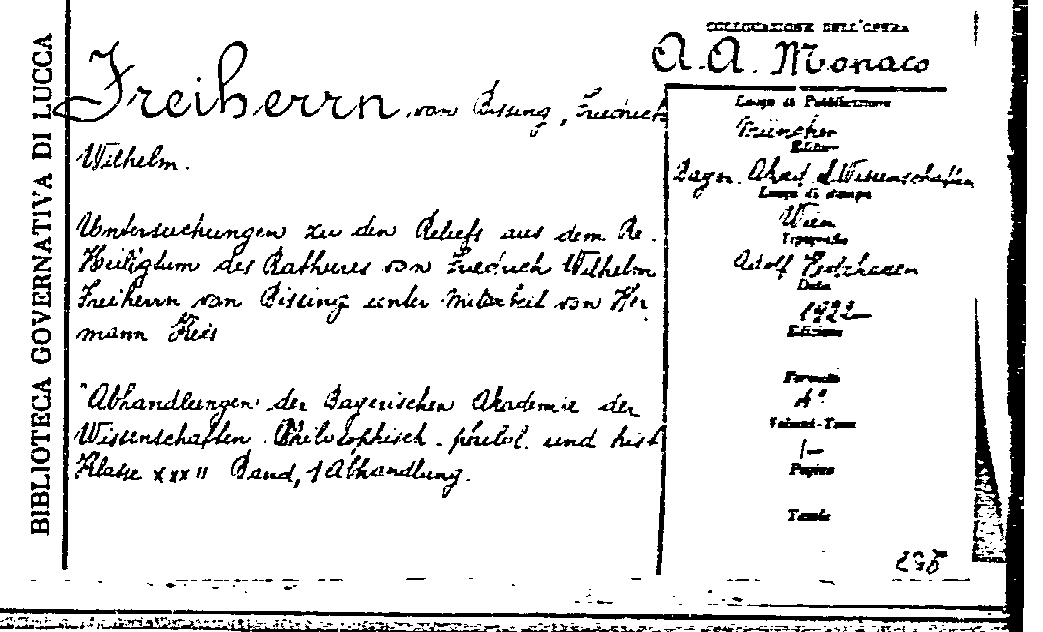 BIBLIOTECA GOVERNATIVA DI LUCCA
COLLOCAZIONE DELL'OPERA
A. A. Monaco
Freiherrn von Bissing, Friedrich
Wilhelm.
Untersuchungen zu den Reliefs aus dem Re-
Heiligtum des Rathures von Friedrich Wilhelm
Freiherrn von Bissing unter Mitarbeit von Her-
mann Kees
"Abhandlungen der Bayerischen Akademie der
Wissenschaften. Philosophisch - philol. und hist
Klasse XXXII Band, 1 Abhandlung.
Luogo di Pubblicazione
München
Editore
Bayer. Akad. d. Wissenschaften
Luogo di stampa
Wien
Tipografia
Adolf Holzhausen
Data
1922
Edizione
Formato
4°
Volumi-Tomi
1-
Pagine
Tavole